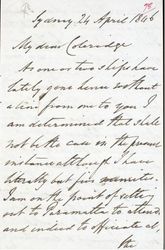 78
Sydney 24 April 1846
My dear Coleridge
As one or two ships have
lately gone hence without
a line from me to you I
am determined that shall
not be the case in the present
instance although I have
literally but five minutes.
I am on the point of setting
out to Paramatta to attend
and indeed to officiate at
the